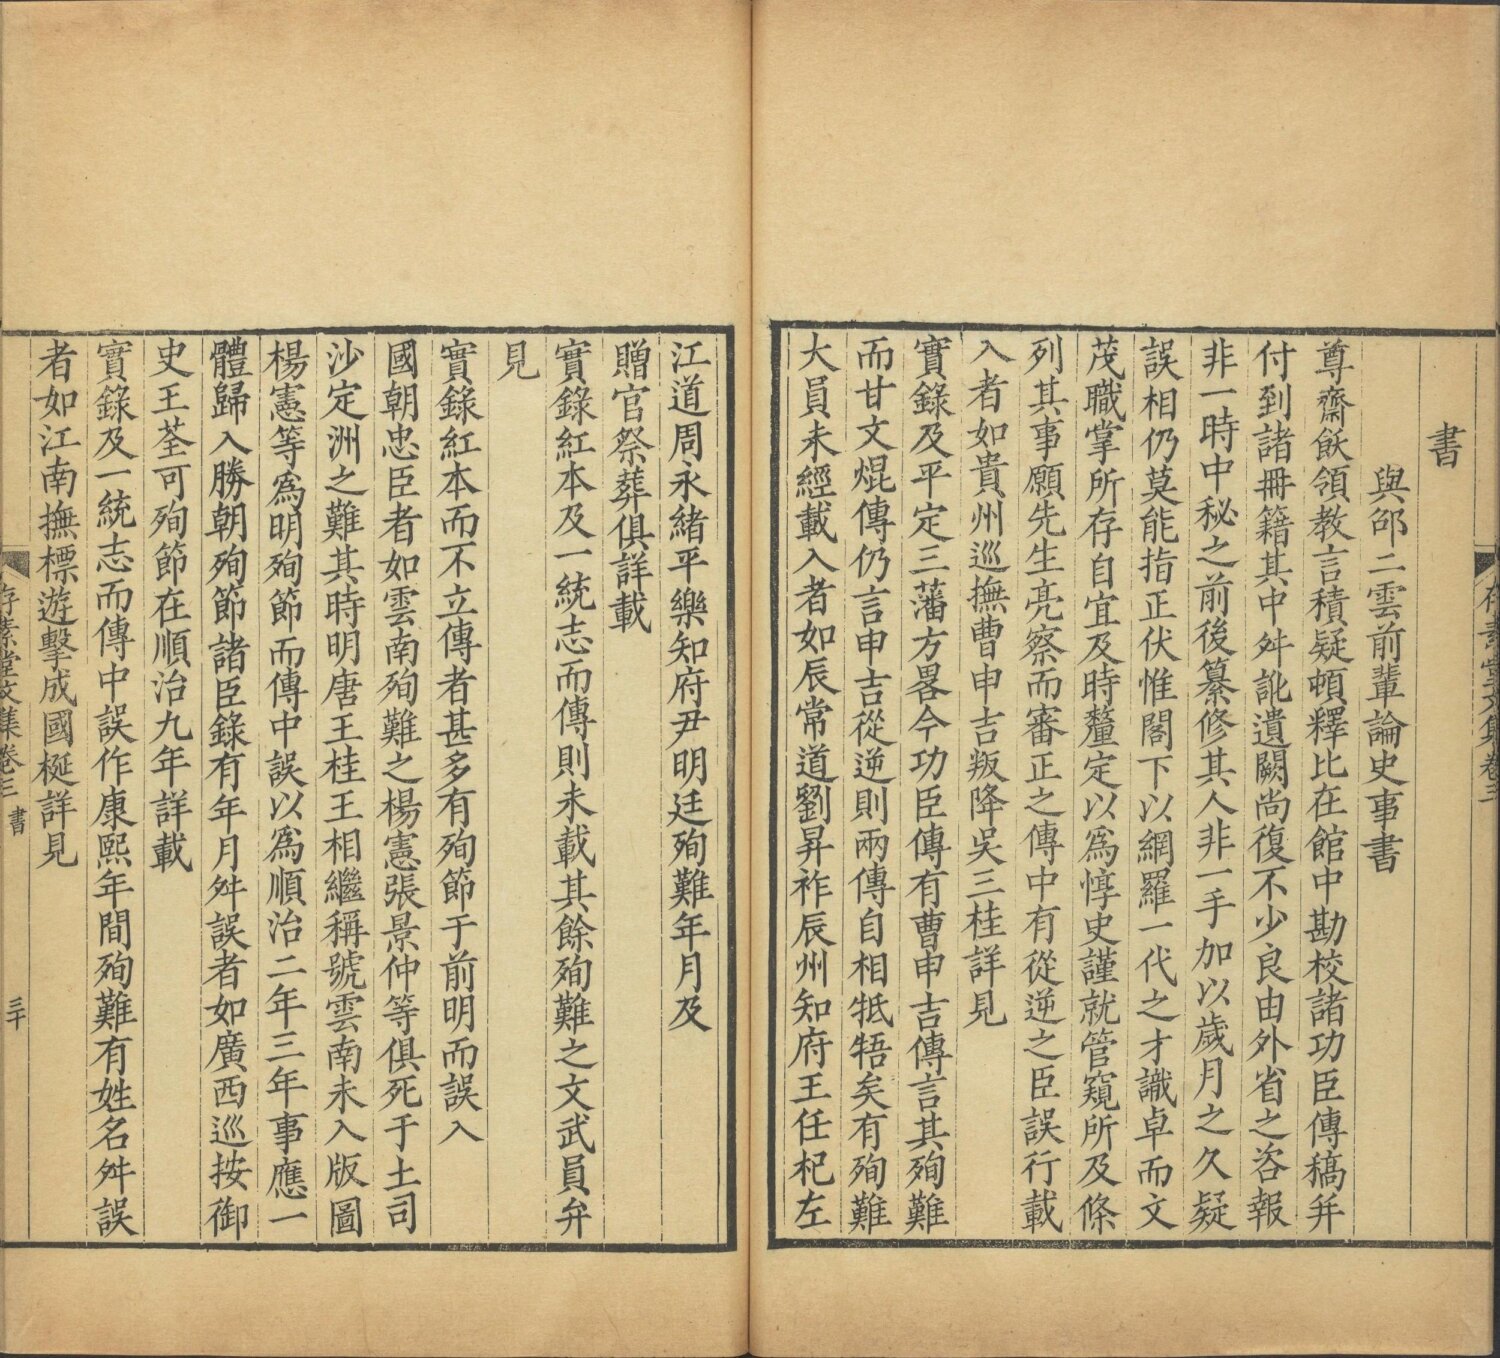 書
與邵二雲前輩論史事書
尊齋飫領教言積疑頓釋比在館中勘校諸功臣傳稿幷
付到諸冊籍其中舛訛遺闕尚復不少良由外省之咨報
非一時中秘之前後纂修其人非一手加以歲月之久疑
誤相仍莫能指正伏惟閣下以網羅一代之才識卓而文
茂職掌所存自宜及時釐定以爲惇史謹就管窺所及條
列其事願先生亮察而審正之傳中有從逆之臣誤行載
入者如貴州巡撫曹申吉叛降吳三桂詳見
實錄及平定三藩方畧今功臣傳有曹申吉傳言其殉難
而甘文焜傳仍言申吉從逆則兩傳自相牴牾矣有殉難
大員未經載入者如辰常道劉昇祚辰州知府王任杞左
存素堂文集卷三
江道周永緒平樂知府尹明廷殉難年月及
贈官祭葬俱詳載
實錄紅本及一統志而傳則未載其餘殉難之文武員弁
見
實錄紅本而不立傳者甚多有殉節于前明而誤入
國朝忠臣者如雲南殉難之楊憲張景仲等俱死于土司
沙定洲之難其時明唐王桂王相繼稱號雲南未入版圖
楊憲等爲明殉節而傳中誤以爲順治二年三年事應一
體歸入勝朝殉節諸臣錄有年月舛誤者如廣西巡按御
史王荃可殉節在順治九年詳載
實錄及一統志而傳中誤作康熙年間殉難有姓名舛誤
者如江南撫標遊擊成國梴詳見
存素堂文集卷三 書 三十